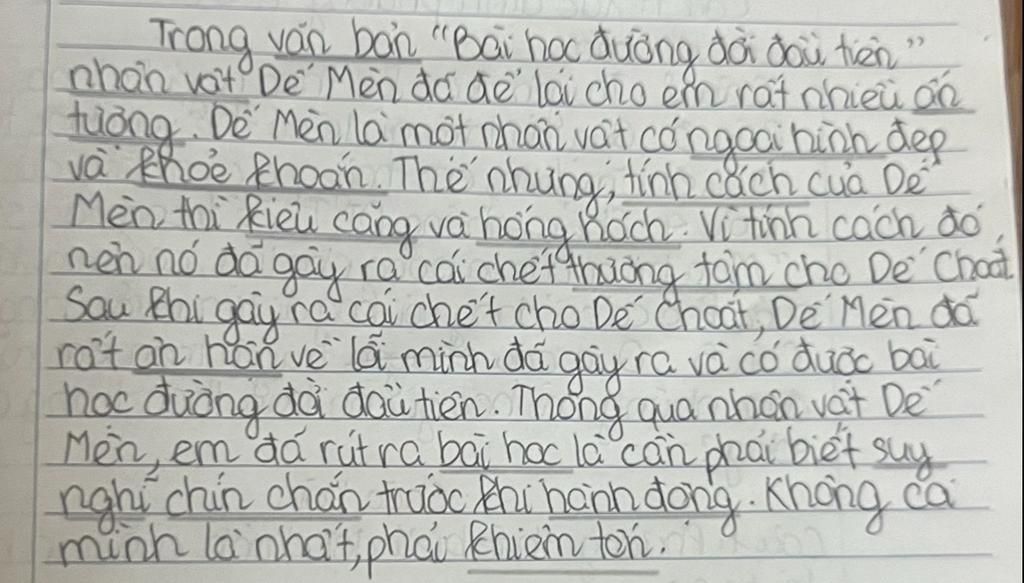 Trong văn bản "Bài học đường đời đầu tiên"
nhân vật Dế Mèn đã để lại cho em rất nhiều ấn
tượng. Dế Mèn là một nhân vật có ngoại hình đẹp
và khoẻ khoắn. Thế nhưng, tính cách của Dế
Mèn thì kiêu căng và hống hách. Vì tính cách đó
nên nó đã gây ra cái chết thương tâm cho Dế Choắt.
Sau khi gây ra cái chết cho Dế Choắt, Dế Mèn đã
rất ân hận về lỗi mình đã gây ra và có được bài
học đường đời đầu tiên. Thông qua nhân vật Dế
Mèn, em đã rút ra bài học là cần phải biết suy
nghĩ chín chắn trước khi hành động. Không cá
mình là nhất, phải khiêm tốn.